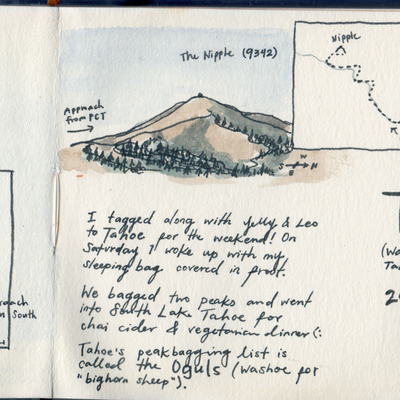 The Nipple (9342)
Nipple
Approach
from PCT
W
S N
E
I tagged along with Jelly & Leo
to Tahoe for the weekend! On
Saturday I woke up with my
sleeping bag covered in frost.
We bagged two peaks and went
into South Lake Tahoe for
chai cider & vegetarian dinner (:
Tahoe's peakbagging list is
called the Oguls (Washoe for
"bighorn sheep").
roach
South
(Wa
Ta
2